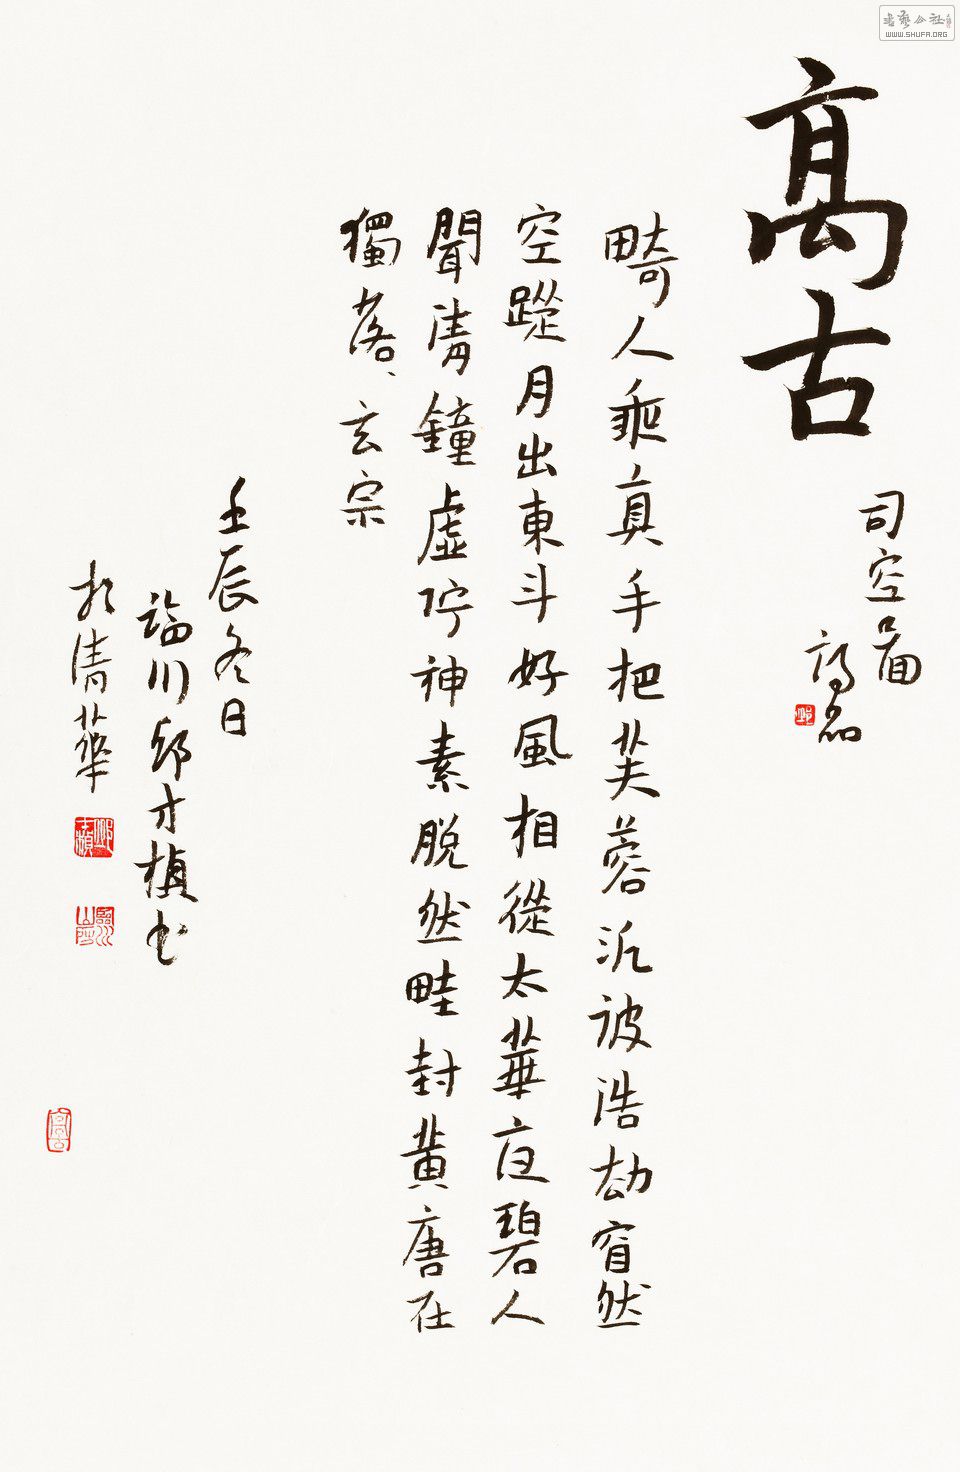 書藝公社
WWW.SHUFA.ORG
高古
司空圖
詩品
畸人乘真手把芙蓉汎彼浩劫窅然
空蹤月出東斗好風相從太華夜碧人
聞清鐘虛佇神素脫然畦封黃唐在
獨落、玄宗
壬辰冬日
臨川邱才楨书
於清華